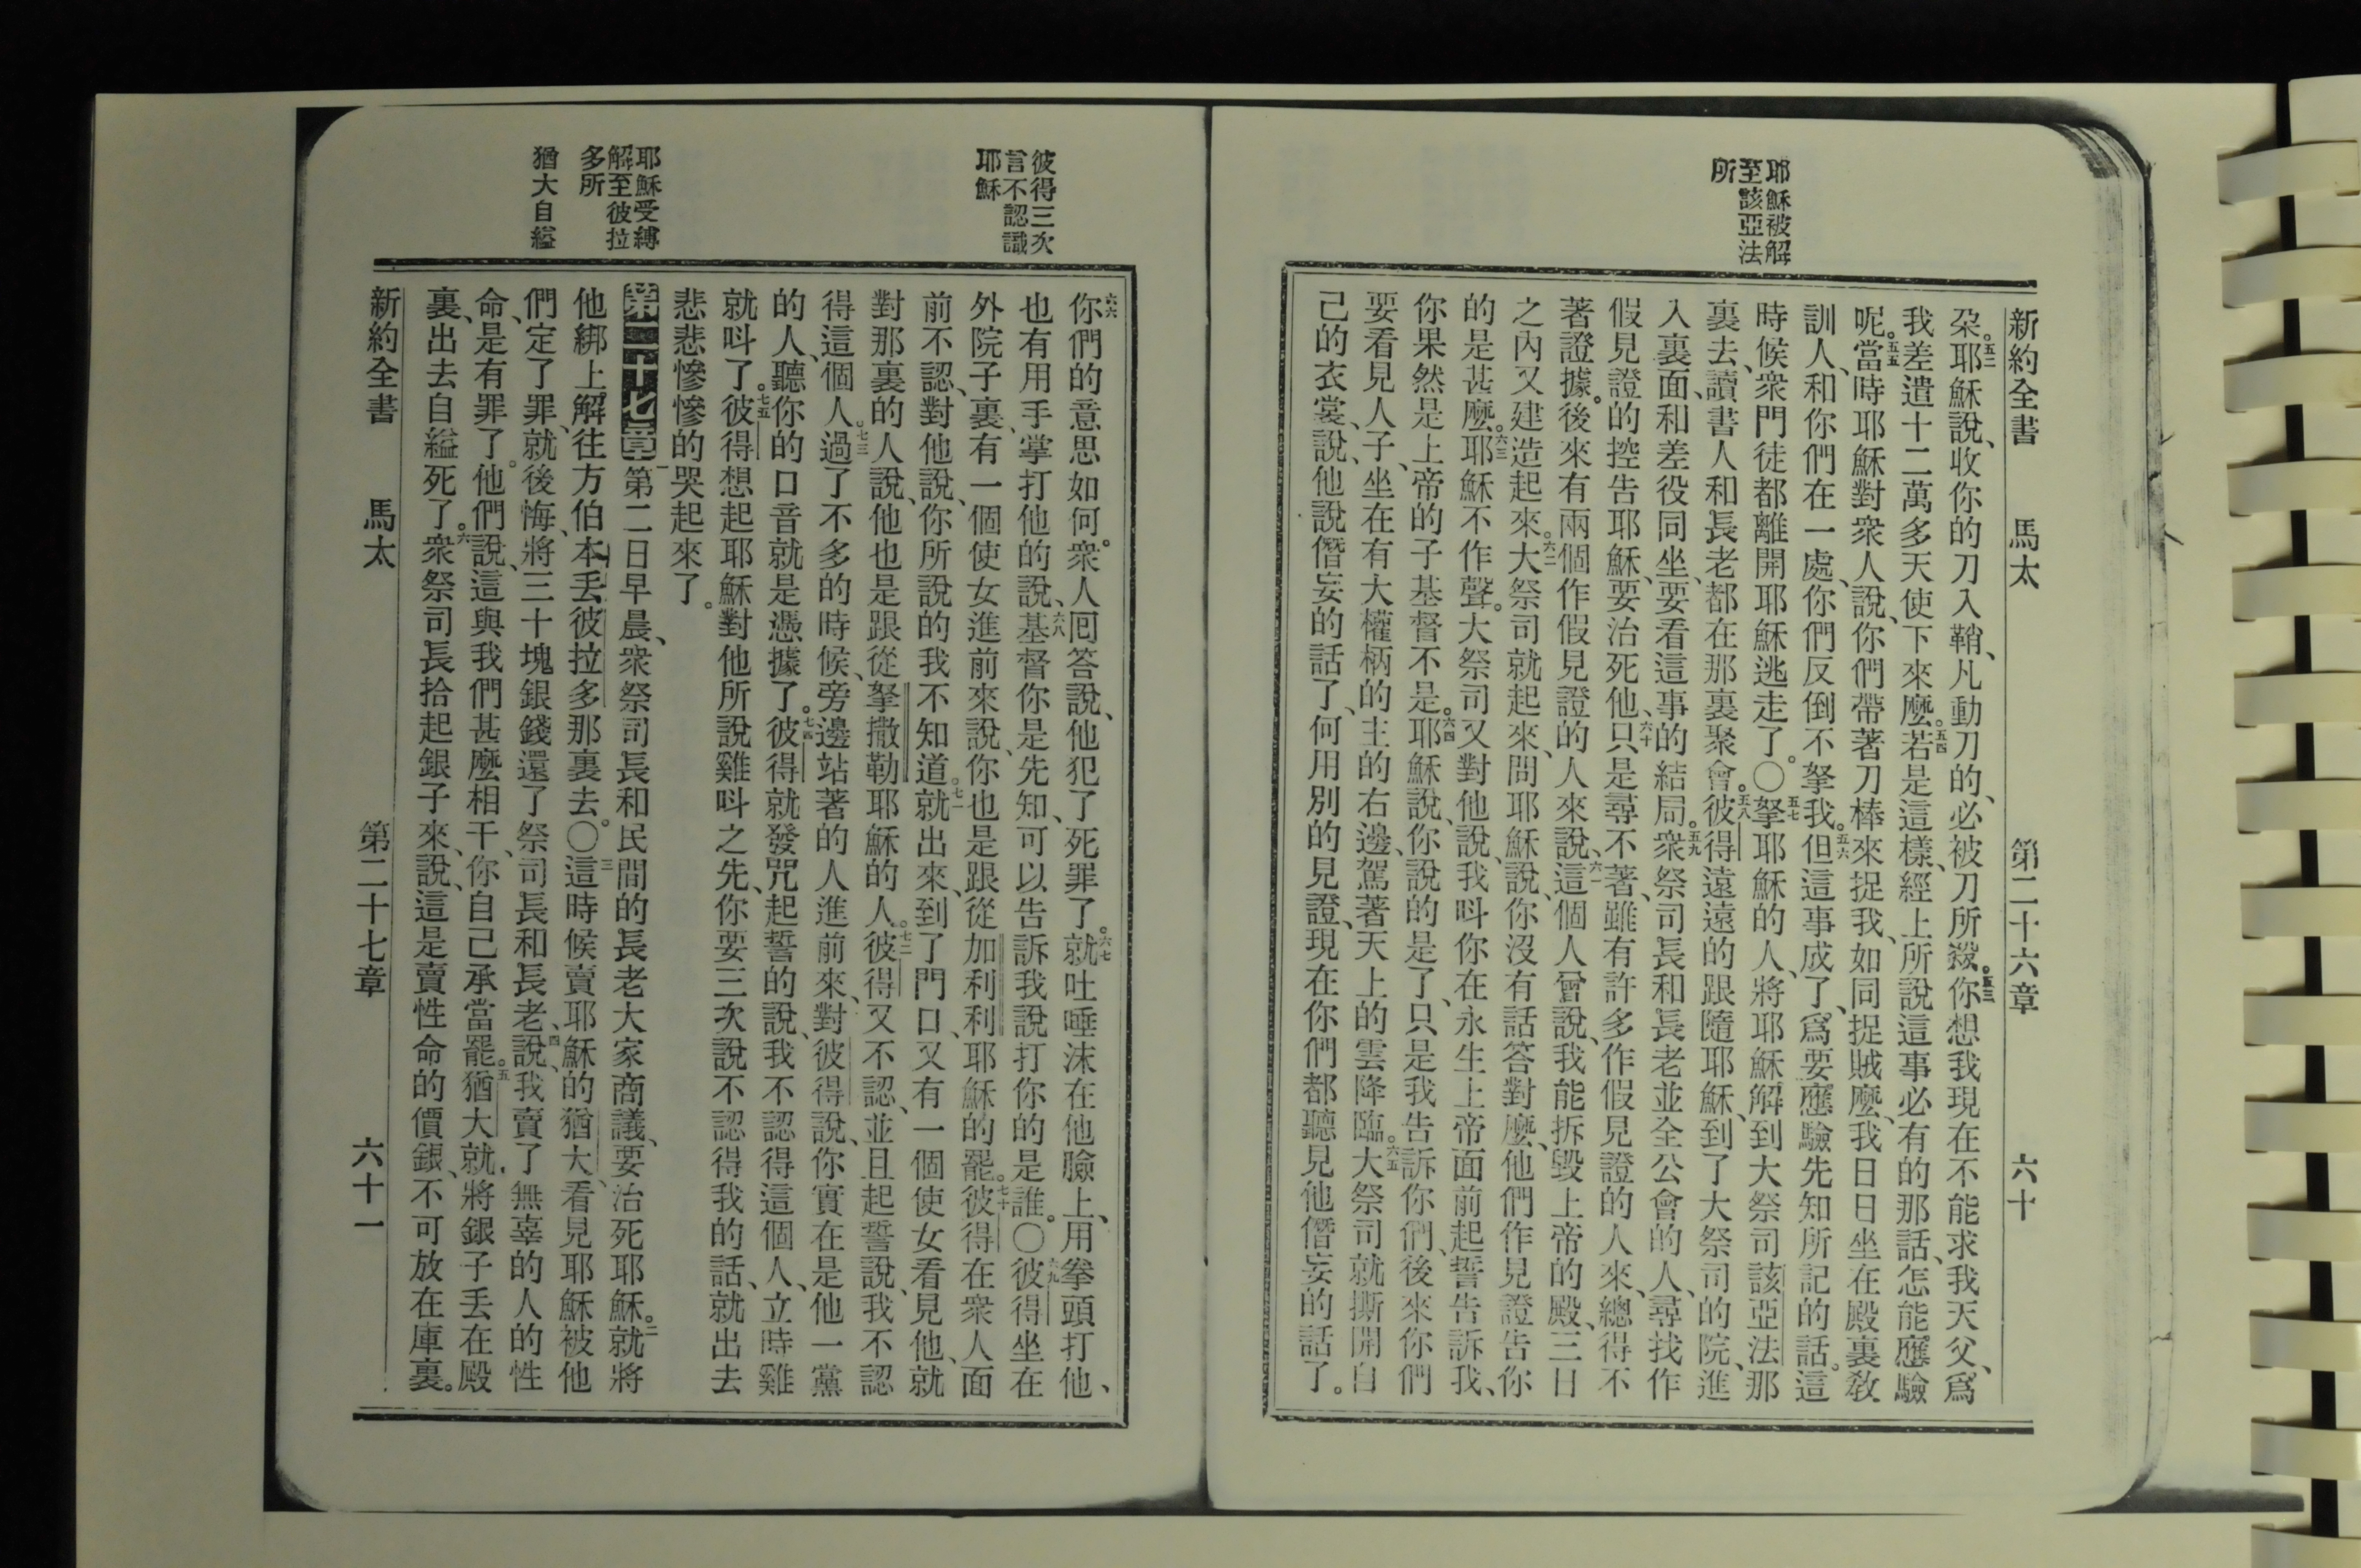 新約全書 馬太 第二十六章 六十
耶穌被解
至該亞法
所
朶。五二耶穌說、收你的刀入鞘、凡動刀的、必被刀所殺。五三你想我現在不能求我天父、爲
我差遣十二萬多天使下來麼。五四若是這樣、經上所說這事必有的那話、怎能應驗
呢。五五當時耶穌對衆人說、你們帶著刀棒來捉我、如同捉賊麼、我日日坐在殿裏敎
訓人、和你們在一處、你們反倒不拏我。五六但這事成了、爲要應驗先知所記的話。這
時候衆門徒都離開耶穌逃走了。〇五七拏耶穌的人、將耶穌解到大祭司該亞法那
裏去、讀書人和長老都在那裏聚會。五八彼得遠遠的跟隨耶穌、到了大祭司的院、進
入裏面、和差役同坐、要看這事的結局。五九衆祭司長和長老並全公會的人、尋找作
假見證的控告耶穌、要治死他、六十只是尋不著、雖有許多作假見證的人來、總得不
著證據。後來有兩個作假見證的人來說、六一這個人曾說、我能拆毀上帝的殿、三日
之內又建造起來。六二大祭司就起來、問耶穌說、你沒有話答對麼、他們作見證告你
的是甚麼。六三耶穌不作聲。大祭司又對他說、我呌你在永生上帝面前起誓告訴我、
你果然是上帝的子基督不是。六四耶穌說、你說的是了、只是我告訴你們、後來你們
要看見人子、坐在有大權柄的主的右邊、駕著天上的雲降臨。六五大祭司就撕開自
己的衣裳、說、他說僭妄的話了、何用別的見證、現在你們都聽見他僭妄的話了。
彼得三次
言不認識
耶穌
耶穌受縛
解至彼拉
多所
猶大自縊
六六你們的意思如何。衆人囘答說、他犯了死罪了。六七就吐唾沫在他臉上、用拳頭打他、
也有用手掌打他的、說、六八基督你是先知、可以告訴我說打你的是誰。〇六九彼得坐在
外院子裏、有一個使女進前來說、你也是跟從加利利耶穌的罷。七十彼得在衆人面
前不認、對他說、你所說的我不知道。七一就出來、到了門口、又有一個使女看見他、就
對那裏的人說、他也是跟從拏撒勒耶穌的人。七二彼得又不認、並且起誓說、我不認
得這個人。七三過了不多的時候、旁邊站著的人進前來、對彼得說、你實在是他一黨
的人、聽你的口音就是憑據了。七四彼得就發咒起誓的說、我不認得這個人、立時雞
就呌了。七五彼得想起耶穌對他所說雞呌之先、你要三次說不認得我的話、就出去
悲悲慘慘的哭起來了。
第二十七章 一第二日早晨、衆祭司長和民間的長老大家商議、要治死耶穌。二就將
他綁上、解往方伯本丟彼拉多那裏去。〇三這時候賣耶穌的猶大、看見耶穌被他
們定了罪、就後悔、將三十塊銀錢還了祭司長和長老、四說、我賣了無辜的人的性
命、是有罪了。他們說、這與我們甚麼相干、你自己承當罷。五猶大就將銀子丟在殿
裏、出去自縊死了。六衆祭司長拾起銀子來、說、這是賣性命的價銀、不可放在庫裏。
新約全書 馬太 第二十七章 六十一